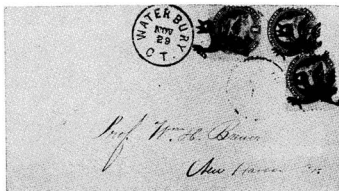 WATERBURY
NOV
29
CT.
Prof. Wm. H. Brewer
New Haven